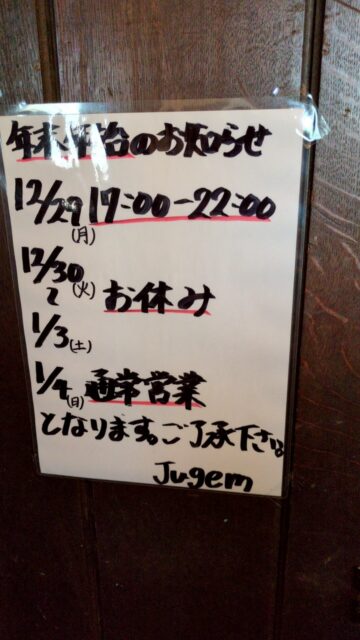 年末年始のお知らせ
12/29(月) 17:00-22:00
12/30(火)
〜 お休み
1/3(土)
1/4(日) 通常営業
となります。ご了承下さい
Jugem